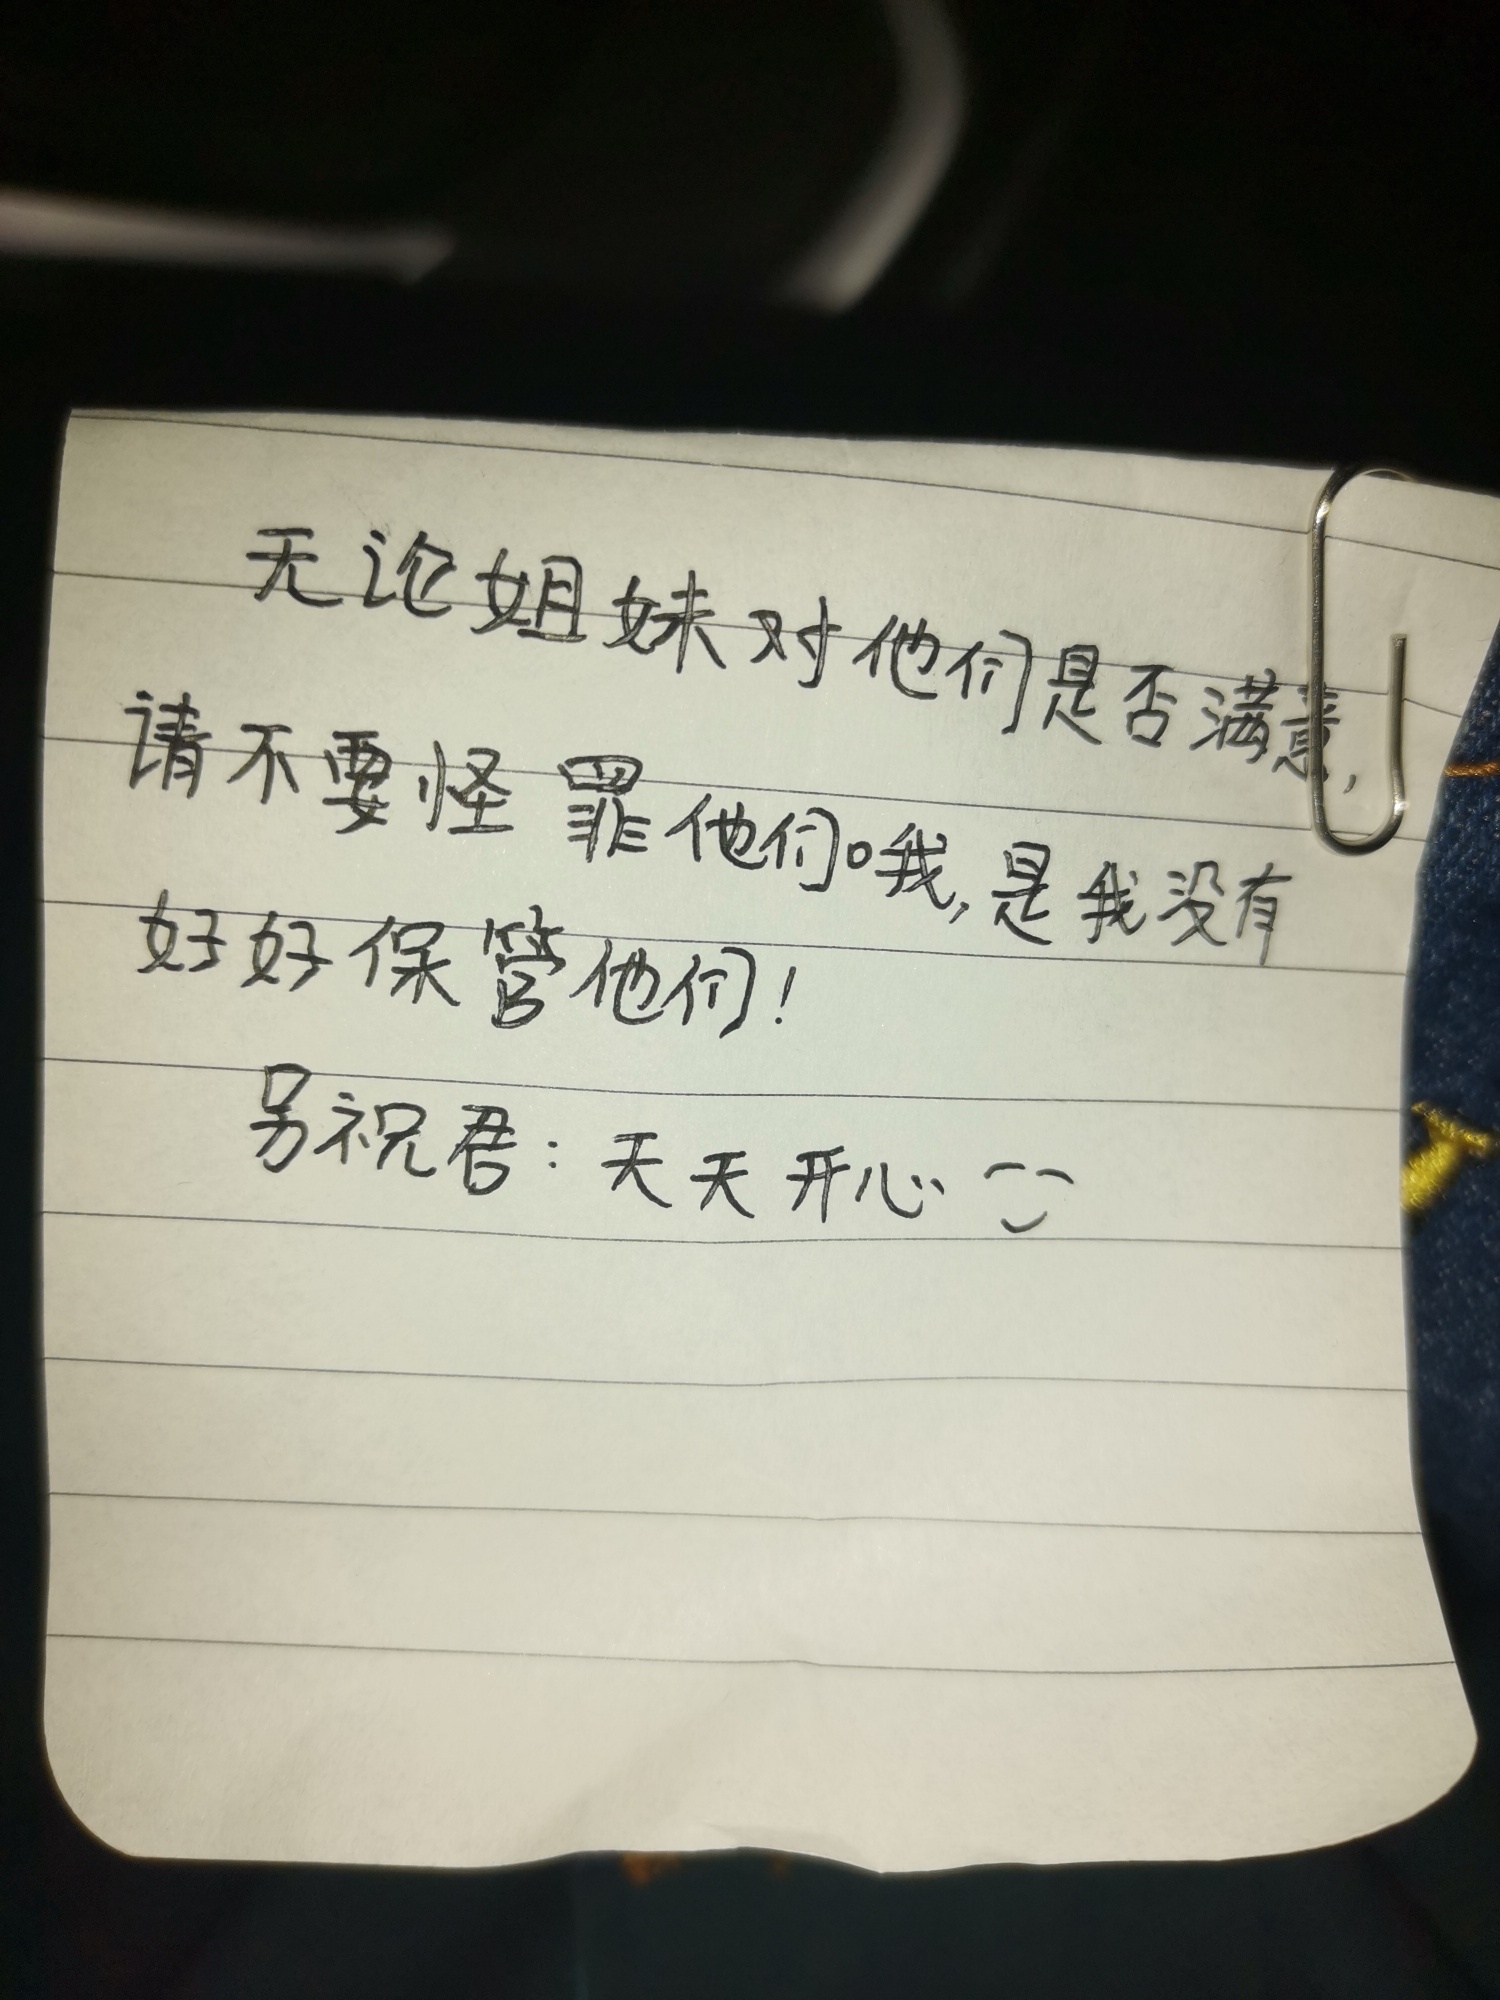 无论姐妹对他们是否满意,
请不要怪罪他们。哦,是我没有
好好保管他们!
另祝君:天天开心